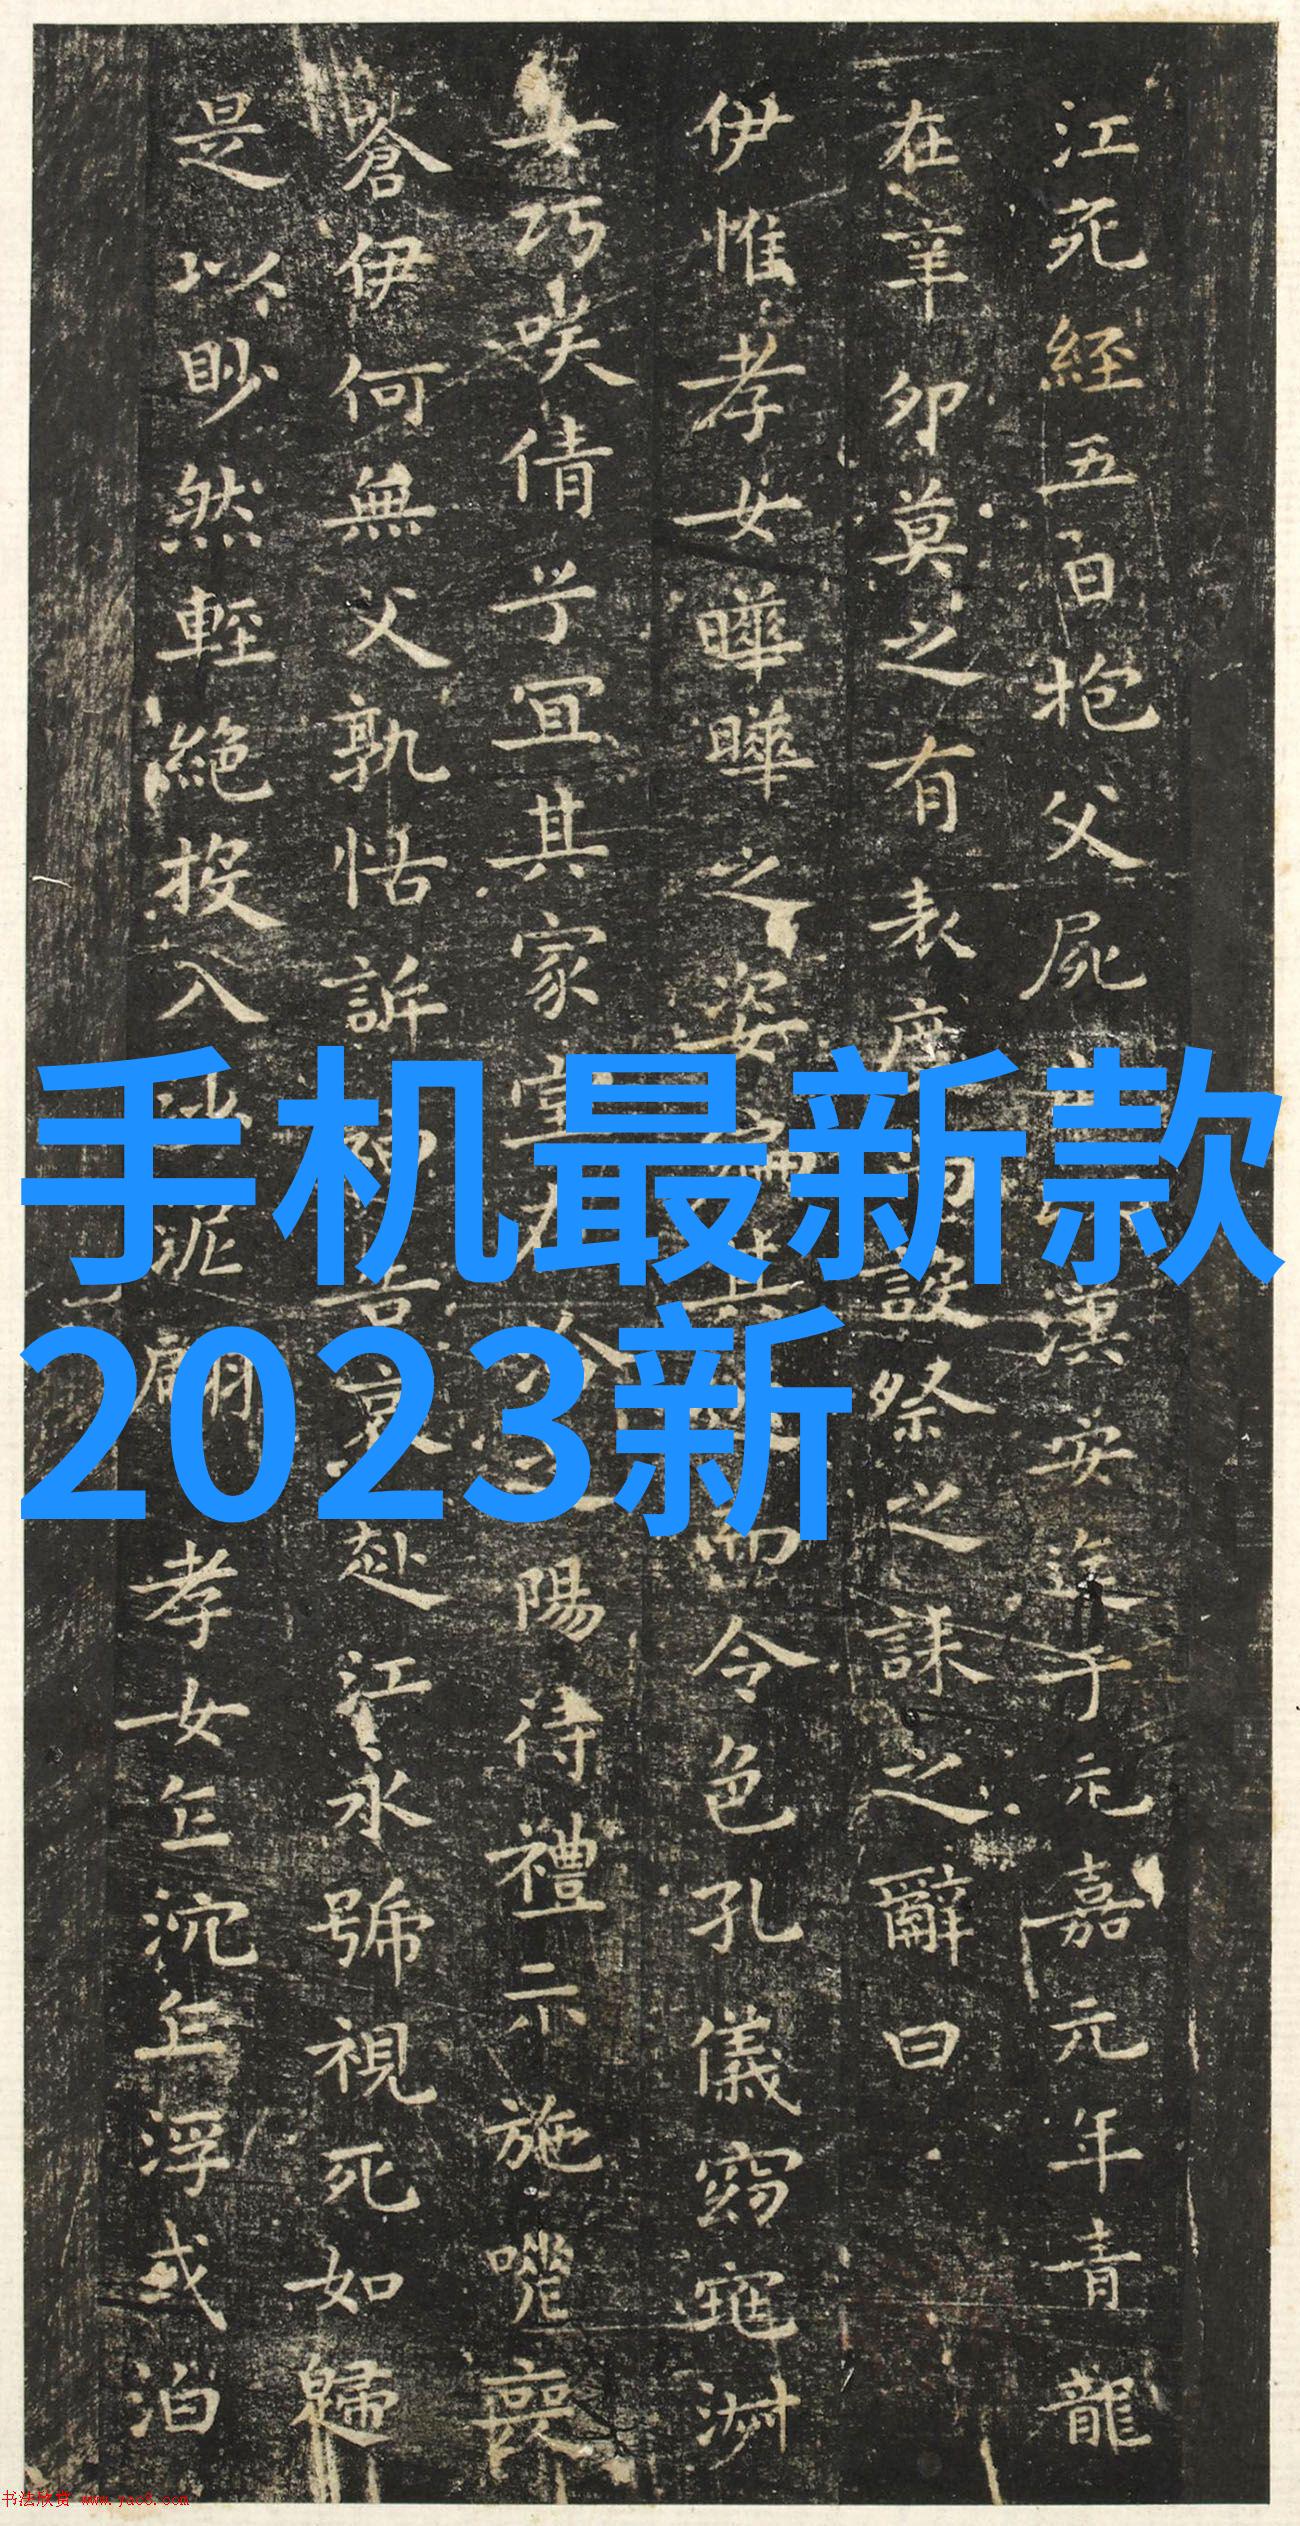 江死經五日抱父屍漢安迄于元嘉元年青龍
在辛卯莫之有表度設祭之誄之辭曰
伊惟孝女曄曄之姿偏其而令色孔儀窈窕淑
女巧咲倩兮宜其家室陽待禮未施嗟喪
蒼伊何無父孰怙訴神告哀赴江永號視死如歸
是以眇然輕絕投入沙泥翩孝女乍沉乍浮或泊
手机最新款
2023新
书法欣赏 www.yac8.com